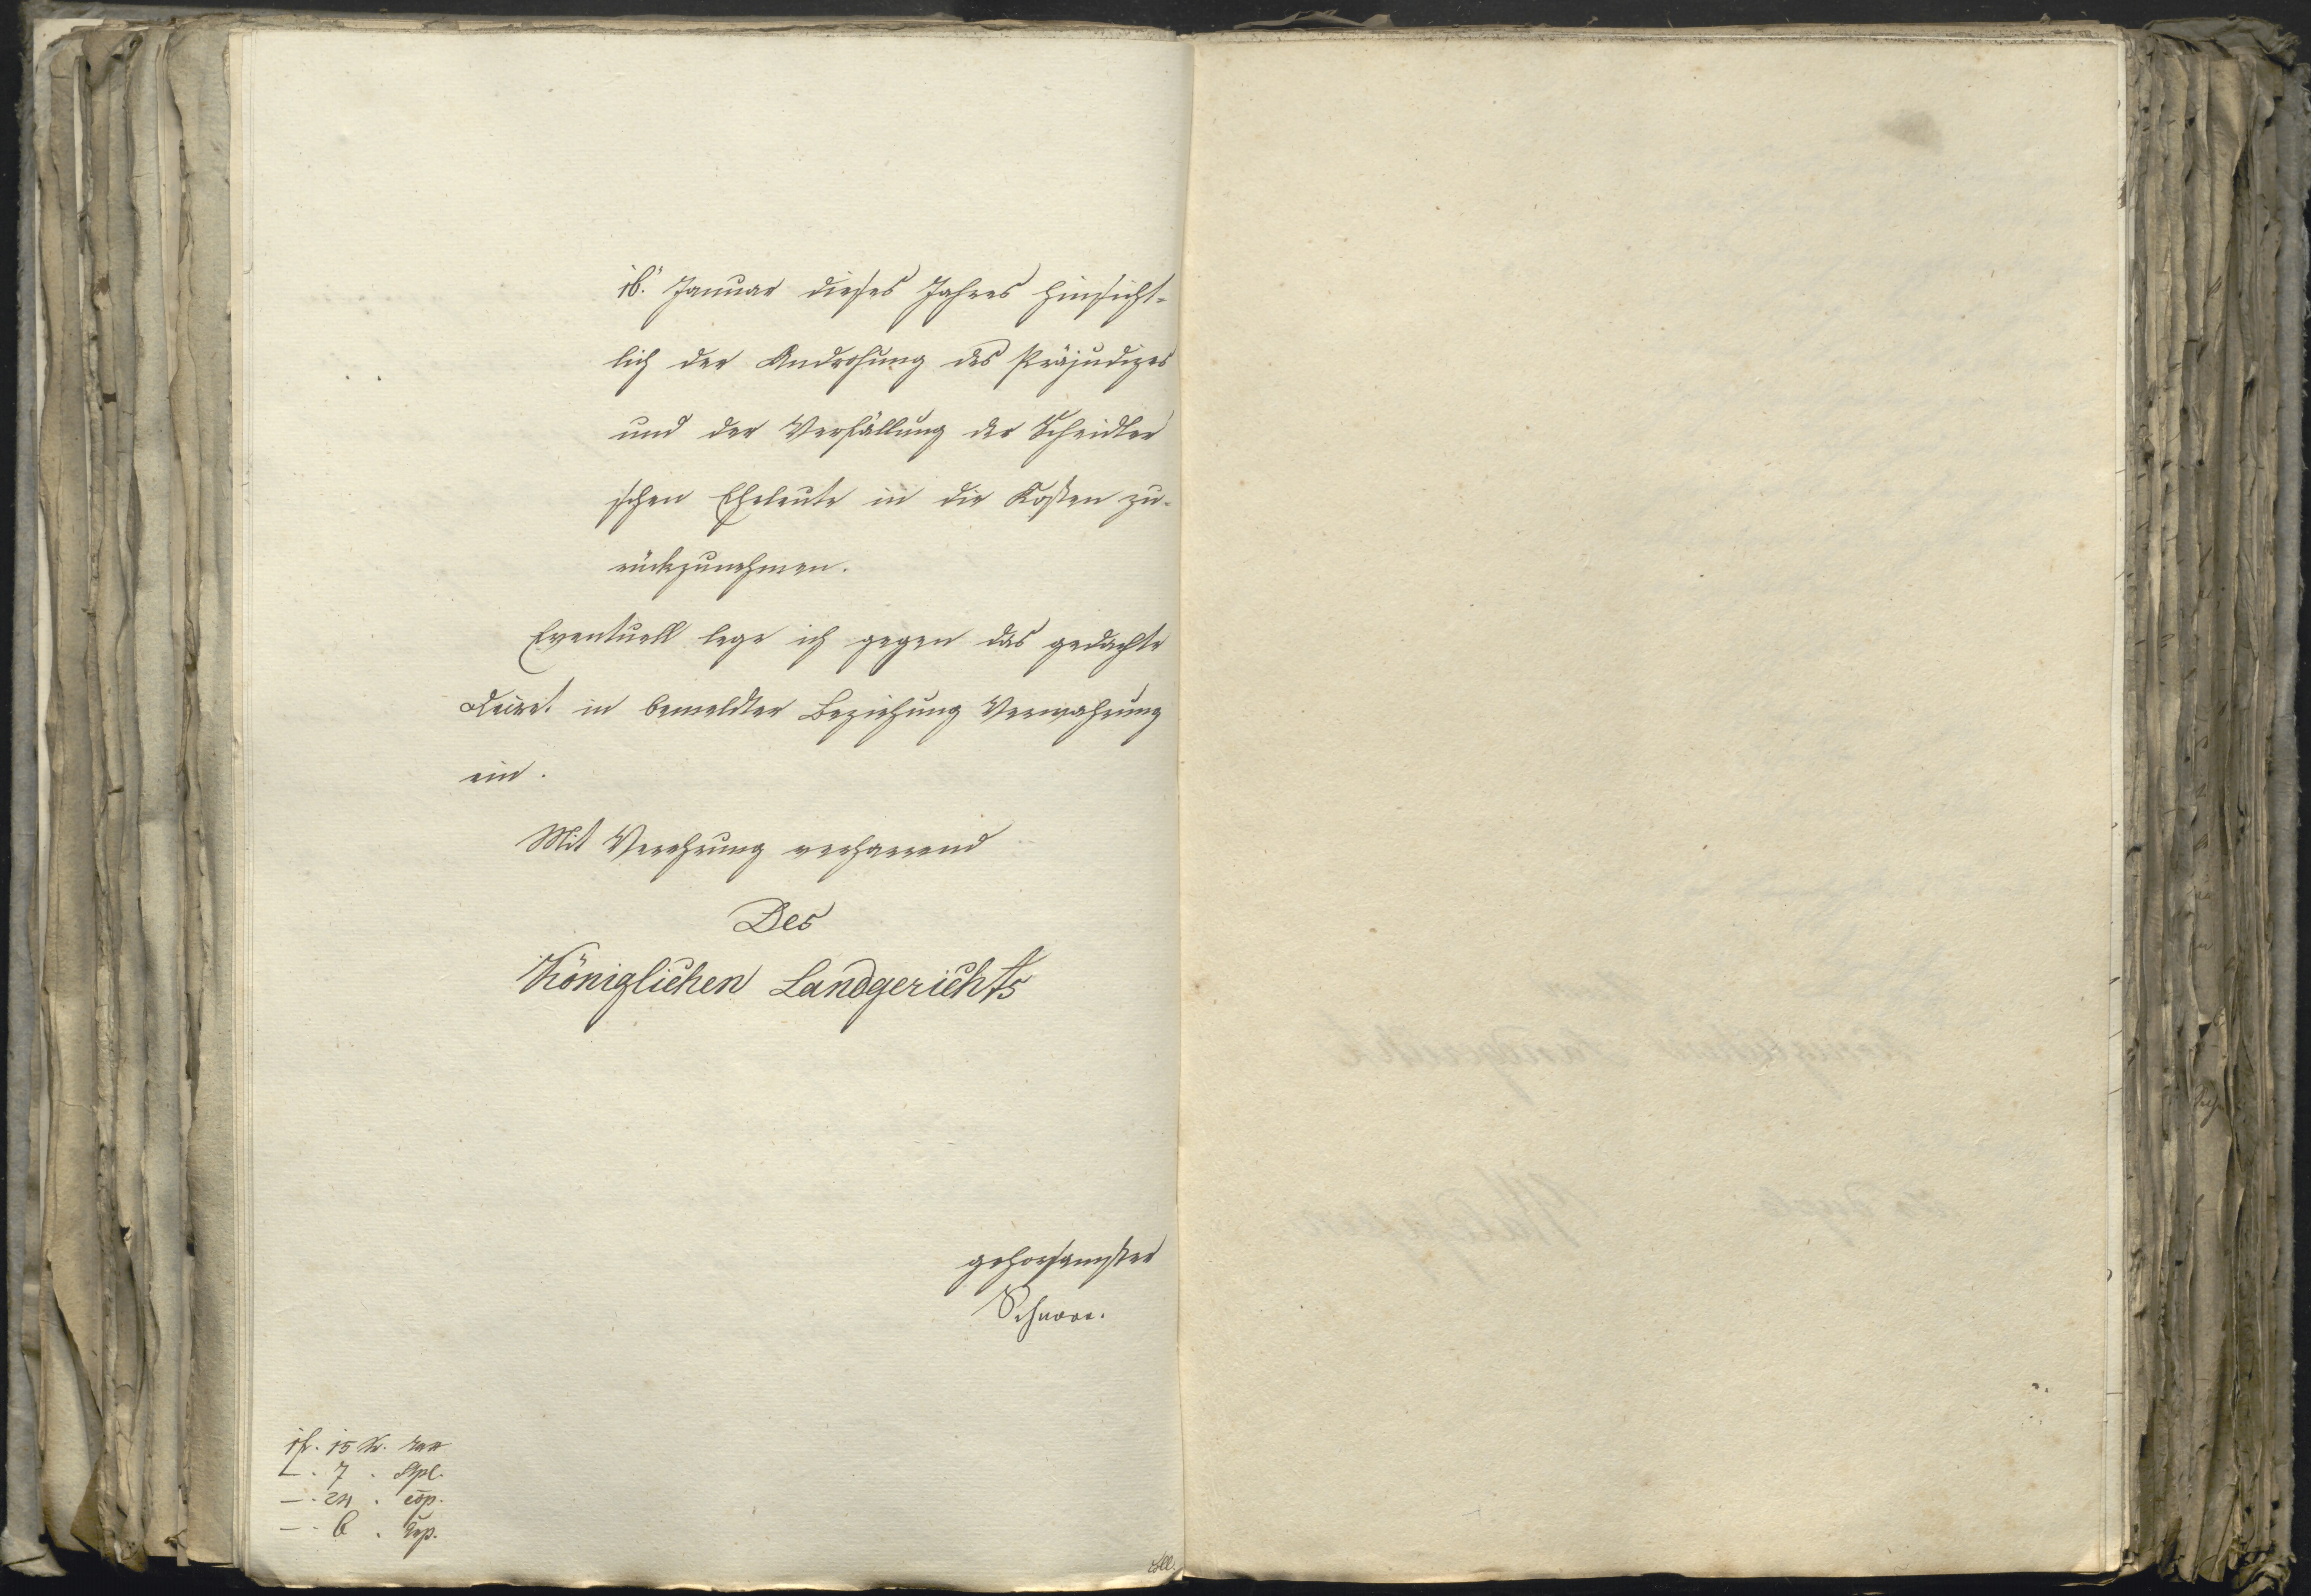 16.n Januar dieses Jahres hinsicht-
lich der Androhung des Präjudizes
und der Verfällung der Scheidler
schen Eheleute in die Kosten zu-
rückzunehmen.
Eventuell lege ich gegen das gedachte
Decret in bemeldter Beziehung Verwahrung
ein.
Mit Verehrung verharrend
Des
Königlichen Landgerichts
gehorsamster
Schnorr.
1 fl. 15 Kr.
–. 7 . Stpl.
–. 24 . cop.
–. 6 . Exp.
Coll.